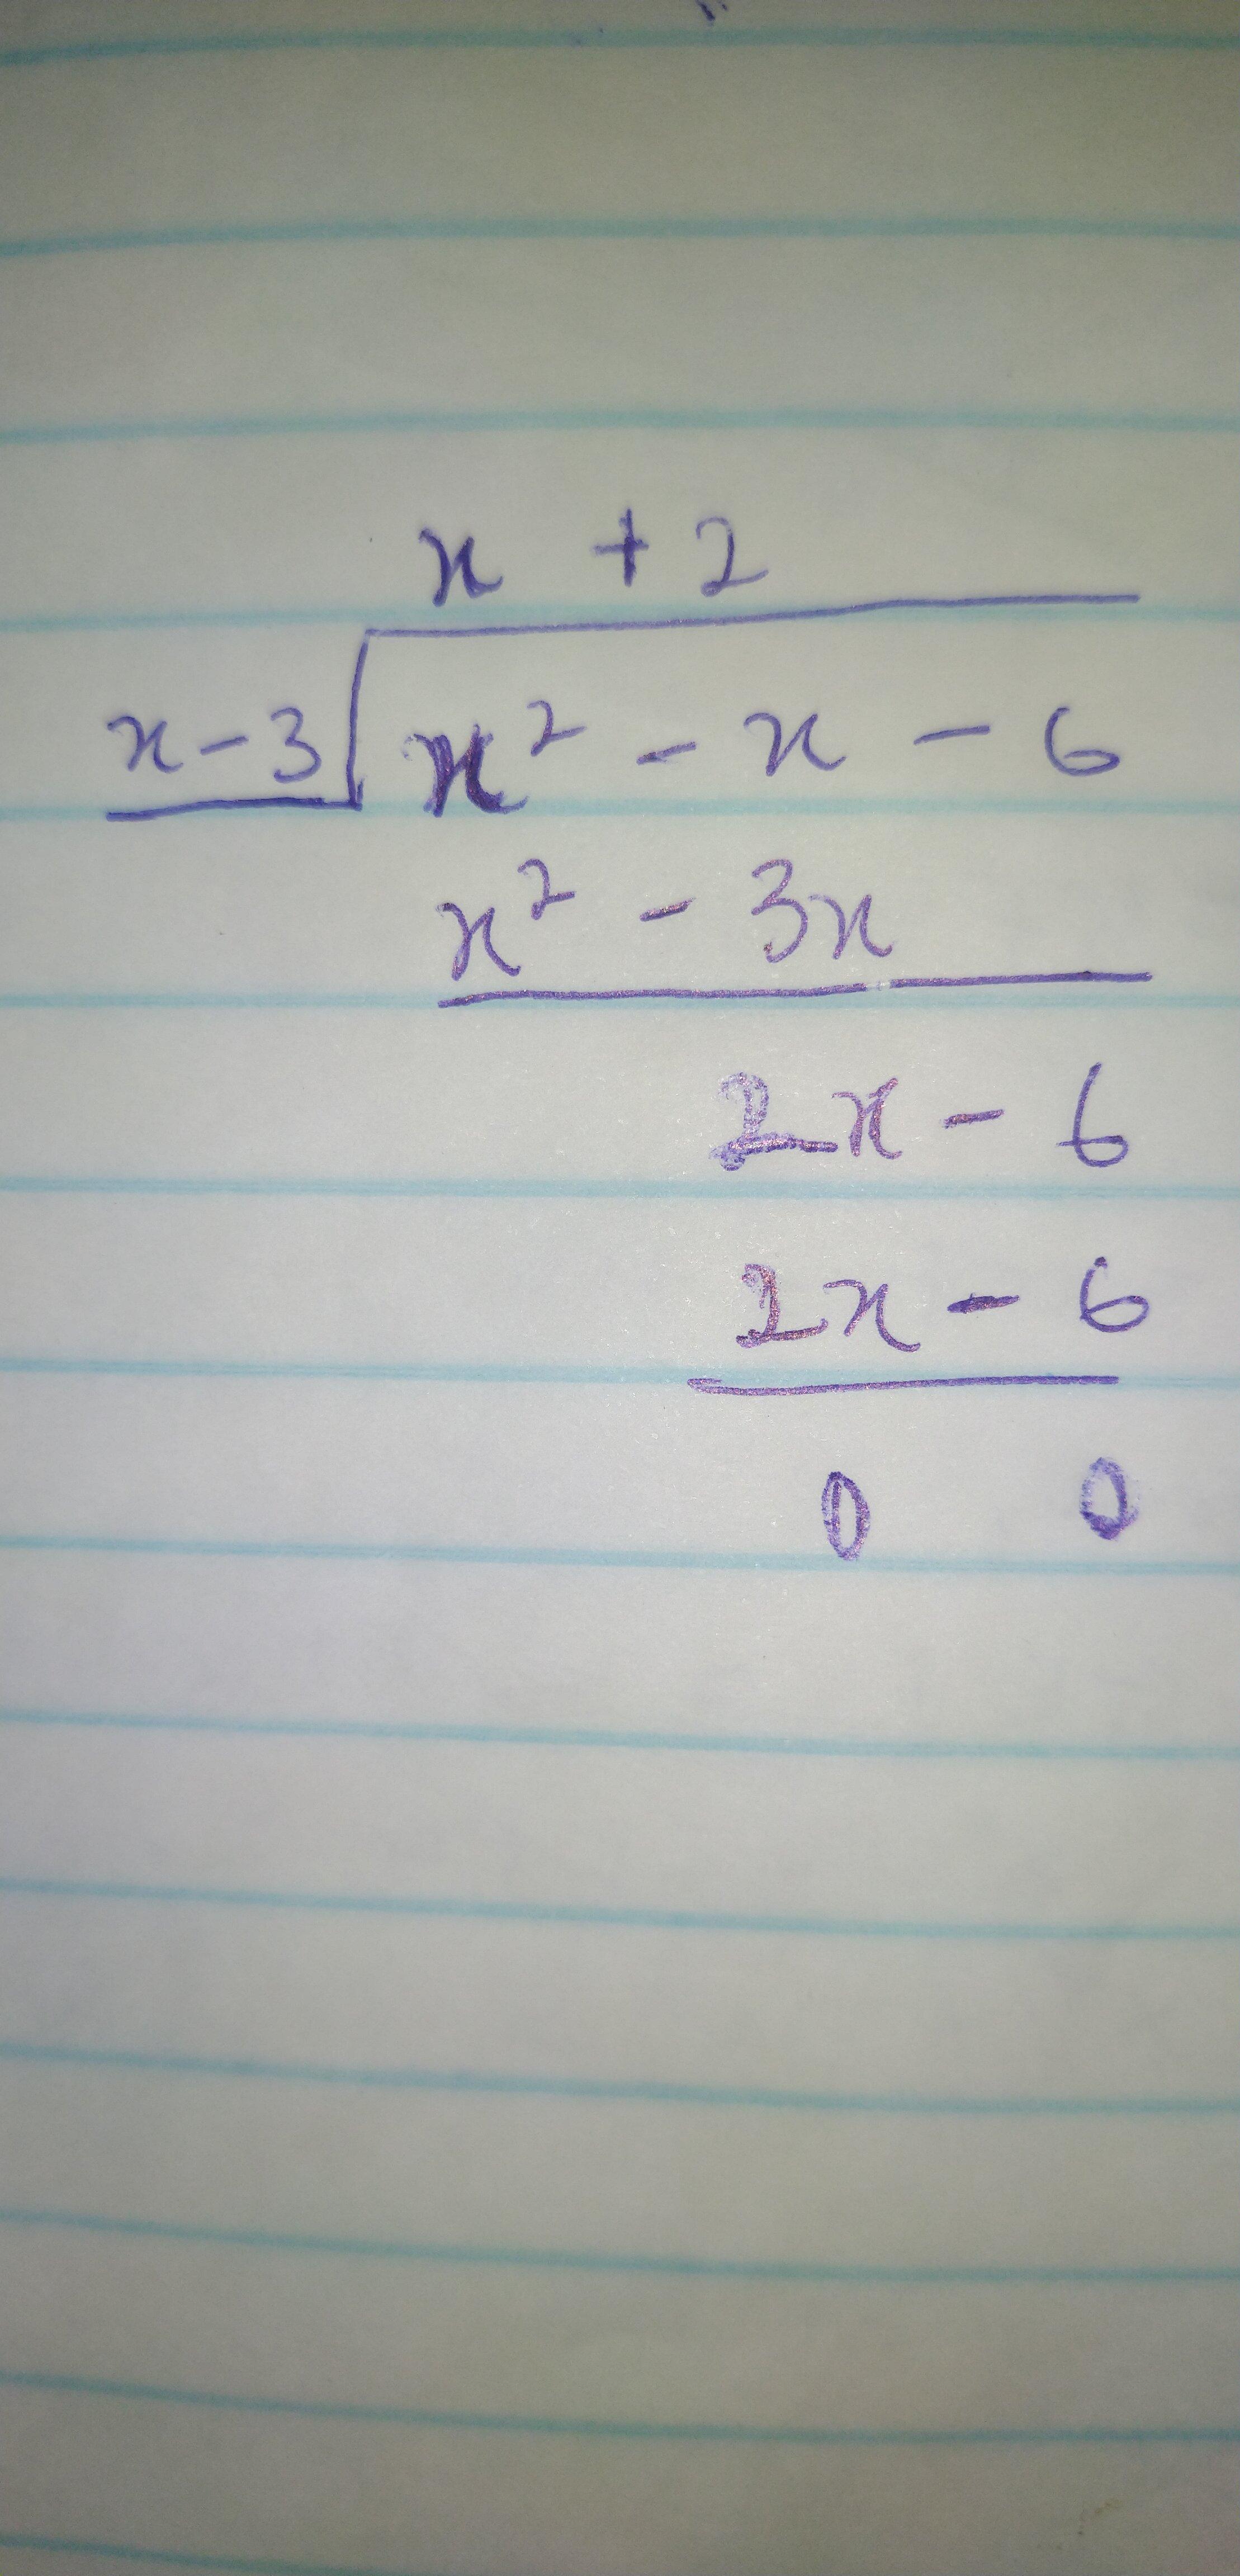 x + 2
x - 3 x² - x - 6
x² - 3x
2x - 6
2x - 6
0 0